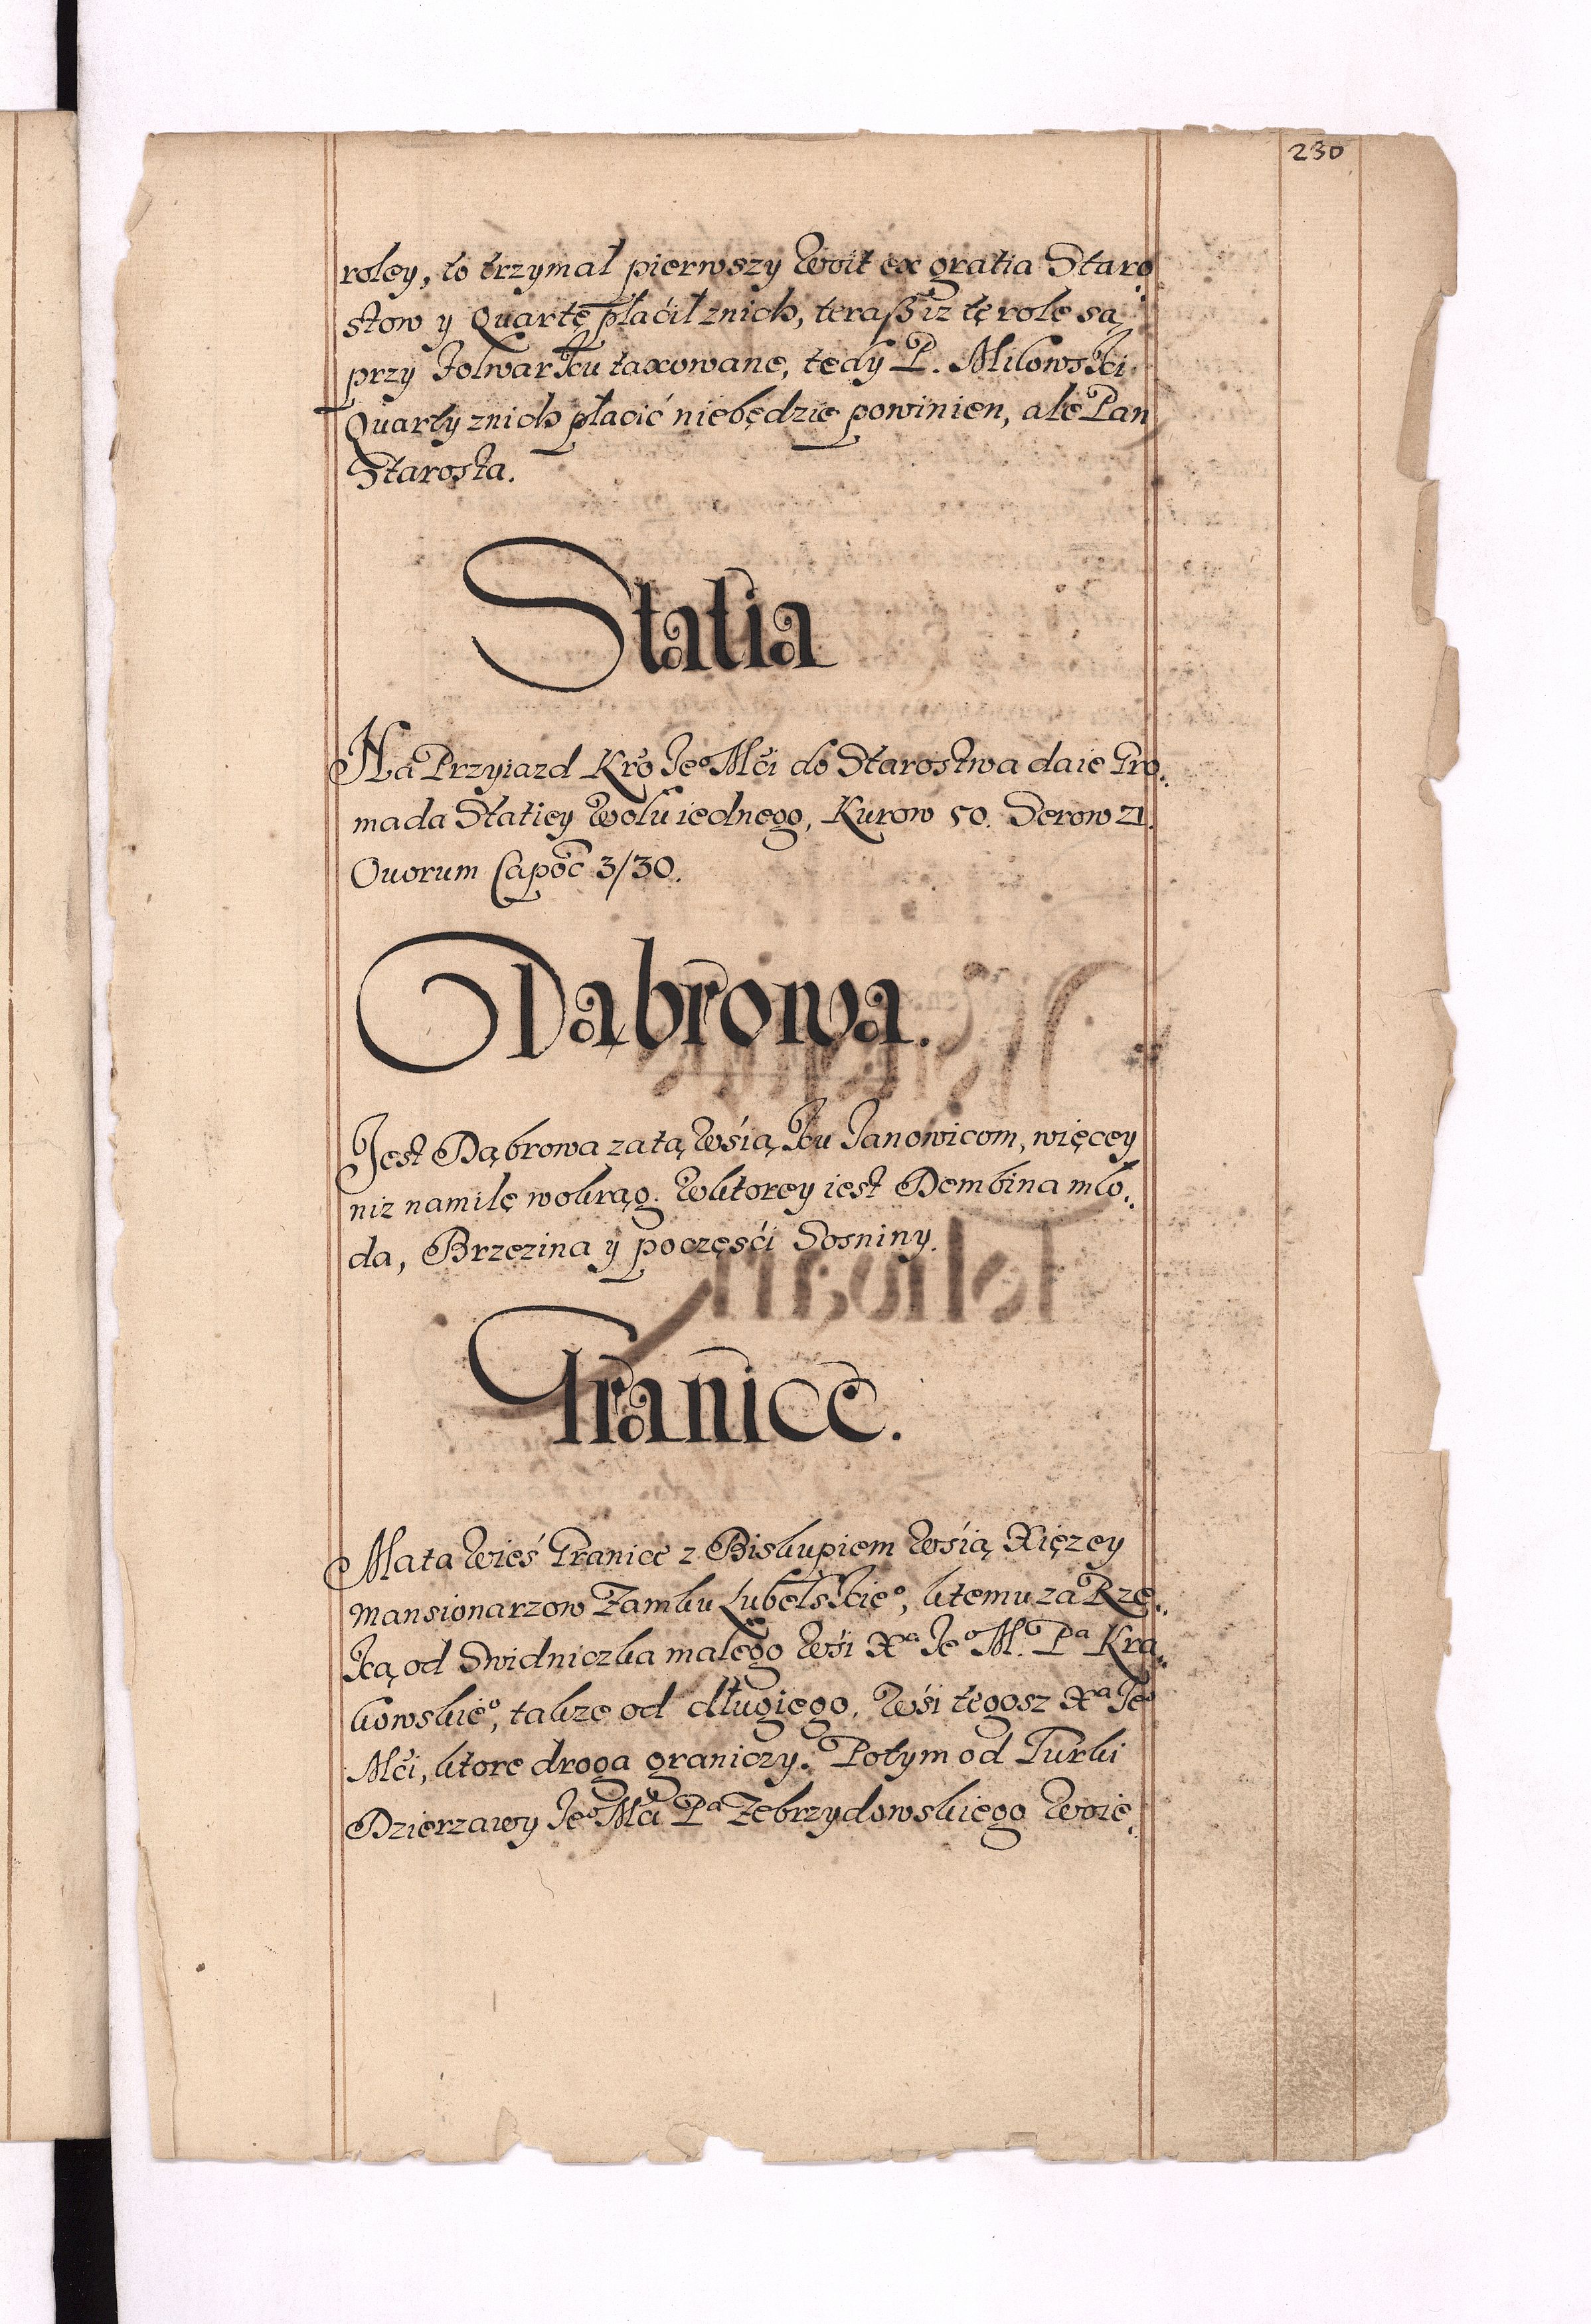 230
roley, to trzymał pierwszy Woit ex gratia Staro.
stow y Quartę płaćił znich, teraß iz tę role są
przy Folwarku taxowane, tedy P. Milowski
Quarty znich płacić niebędzie powinien, ale Pan
Starosta.
Statia
Na Przyiazd Kro Jeº Mci do Starostwa daie Gro.
mada Statiey Wołu iednego, Kurow 50. Serow 21.
Ovorum Capoc 3/30.
Dąbrowa.
Jest Dąbrowa za tą Wśią ku Janowicom, więcey
niz namilę wokrąg. Wktorey iest Dembina mło.
da, Brzezina y poczęśći Sosniny.
Granice.
Ma ta Wieś Granice z Biskupiem Wśią Xięzey
mansionarzow Zamku Lubelskieº, ktemu za Rze.
ką od Swidniczka małego Wśi Xª Jeº M. Pª Kra.
kowskieº, takze od długiego. Wśi tegosz Xª Jeº
Mći, ktore droga graniczy. Potym od Turki
Dzierzawy Jeº Mći Pª Zebrzydowskiego Woie.